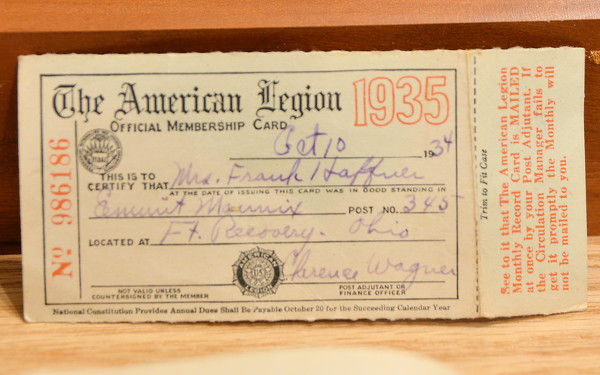 The American Legion 1935
OFFICIAL MEMBERSHIP CARD
Oct 10 1934
THIS IS TO
CERTIFY THAT Mrs. Frank Haffner
AT THE DATE OF ISSUING THIS CARD WAS IN GOOD STANDING IN
Emmit Mannix POST NO. 345
LOCATED AT Ft. Recovery. Ohio
Clarence Wagner
NOT VALID UNLESS
COUNTERSIGNED BY THE MEMBER
POST ADJUTANT OR
FINANCE OFFICER
National Constitution Provides Annual Dues Shall Be Payable October 20 for the Succeeding Calendar Year
No 986186
Trim to Fit Case
See to it that The American Legion
Monthly Record Card is MAILED
at once by your Post Adjutant. If
the Circulation Manager fails to
get it promptly the Monthly will
not be mailed to you.